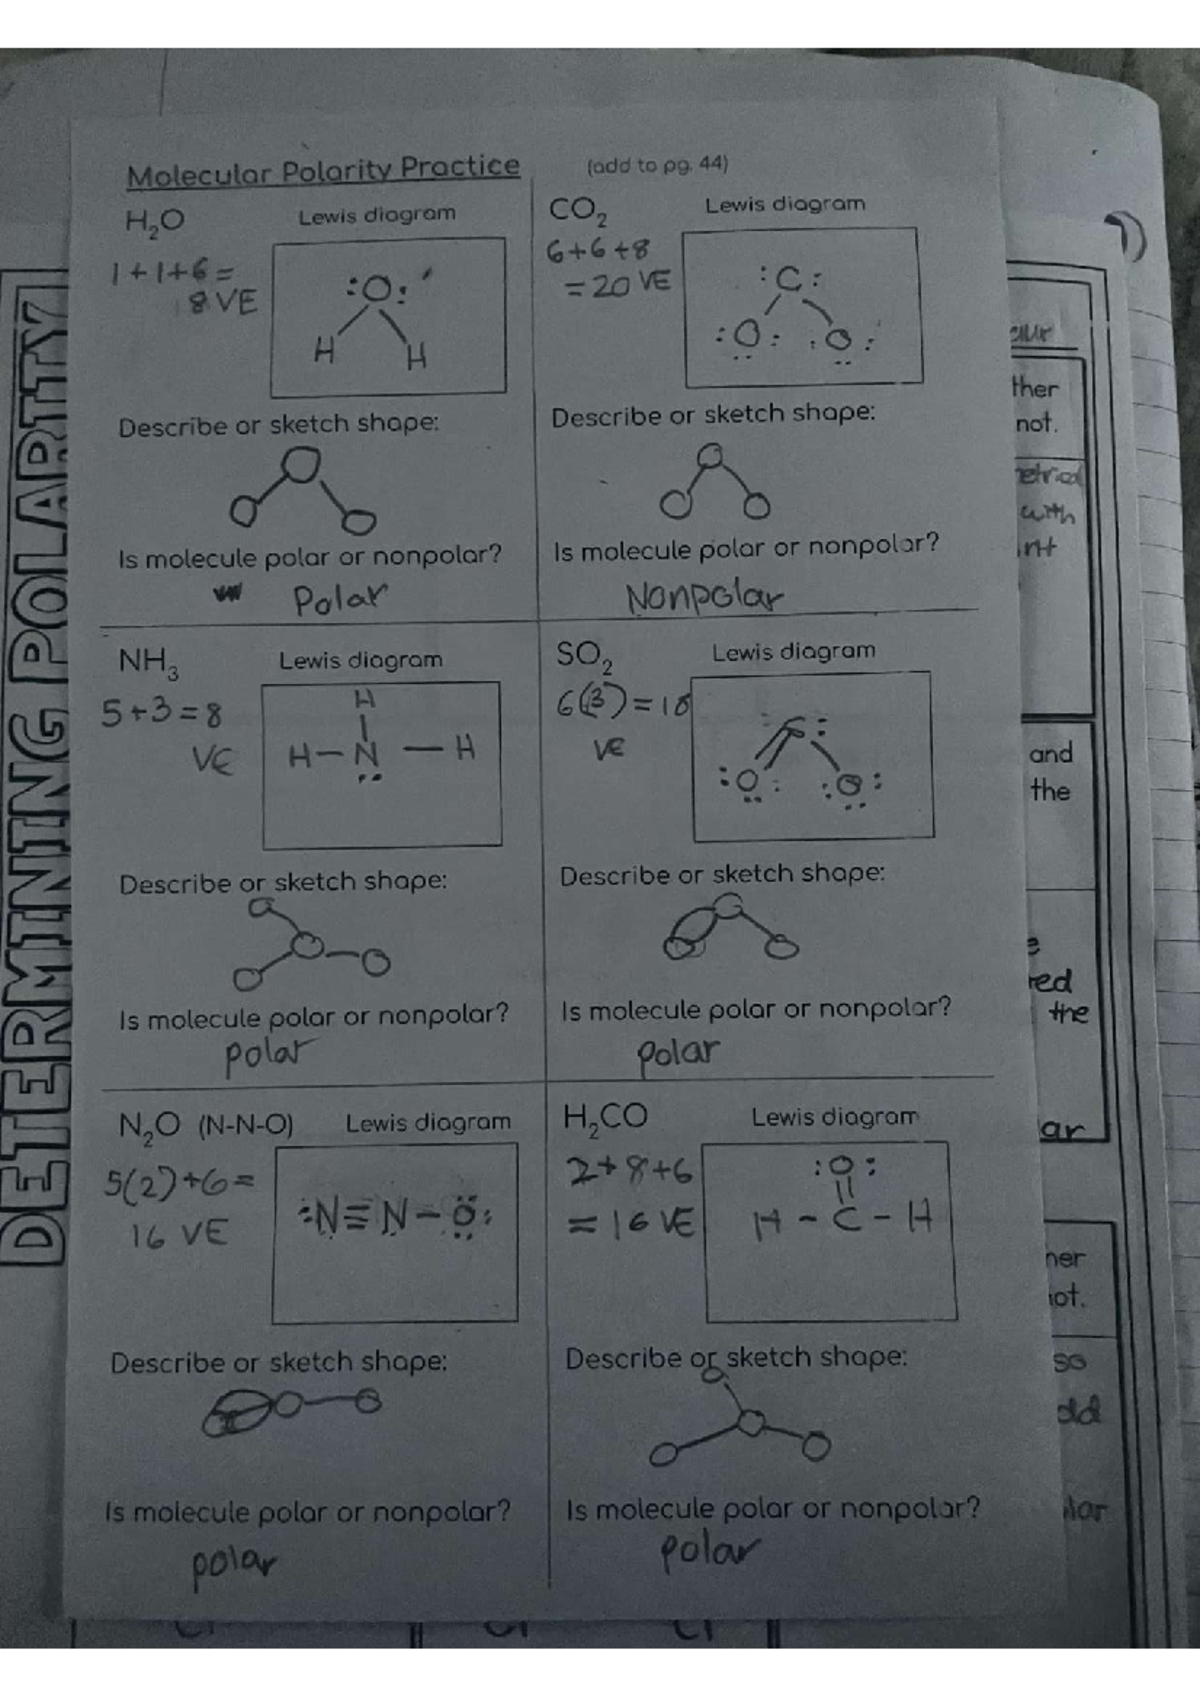 DETERMINING POLARITY
Molecular Polarity Practice (add to pg. 44)
H₂O Lewis diagram
1+1+6=
8 VE
:O:
H H
Describe or sketch shape:
Is molecule polar or nonpolar?
Polar
CO₂ Lewis diagram
6+6+8
=20 VE
:C:
:O: :O:
Describe or sketch shape:
Is molecule polar or nonpolar?
Nonpolar
NH₃ Lewis diagram
5+3=8
VE
H
H-N-H
Describe or sketch shape:
Is molecule polar or nonpolar?
polar
SO₂ Lewis diagram
6(3)=18
VE
:O: :O:
Describe or sketch shape:
Is molecule polar or nonpolar?
polar
N₂O (N-N-O) Lewis diagram
5(2)+6=
16 VE
:N≡N-O:
Describe or sketch shape:
Is molecule polar or nonpolar?
polar
H₂CO Lewis diagram
2+8+6
=16 VE
:O:
H-C-H
Describe or sketch shape:
Is molecule polar or nonpolar?
polar
ther
not.
with
and
the
red
the
ar
her
ot.
so